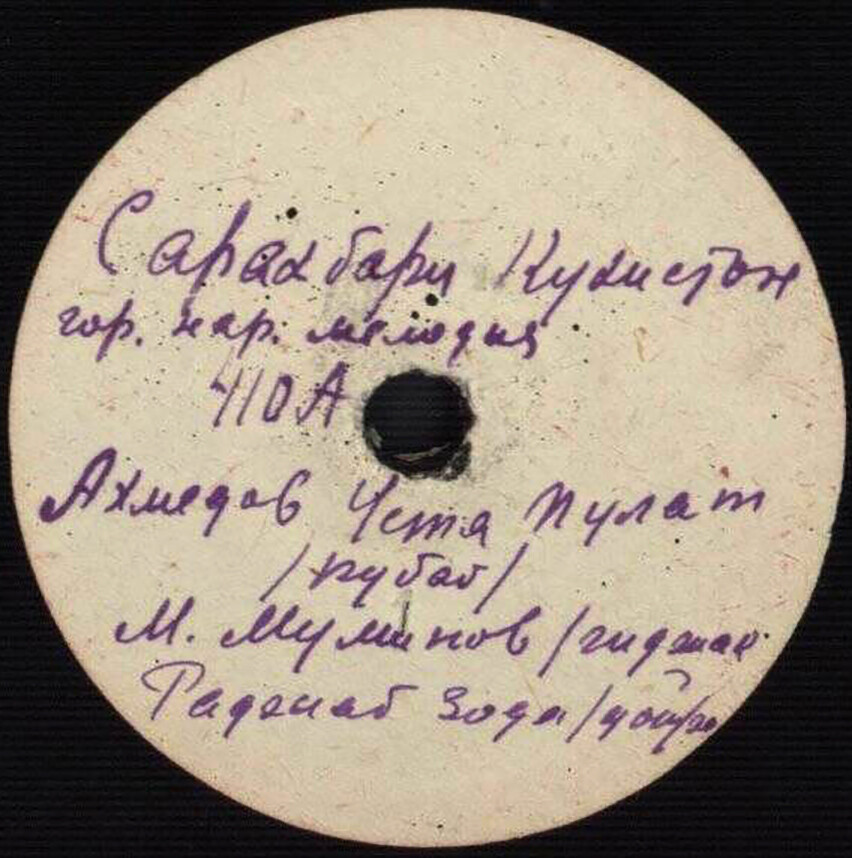 Сарахбари Кухистон
гор. нар. мелодия
410А
Ахмедов Уста Пулат
/рубоб/
М. Муминов /гиджак
Раджаб Зода /дойра